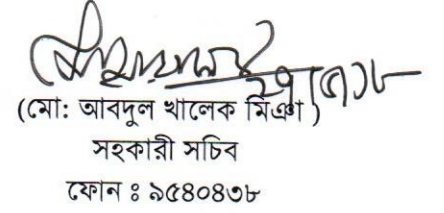 (মো: আবদুল খালেক মিঞা)
সহকারী সচিব
ফোন ঃ ৯৫৪০৪৩৮